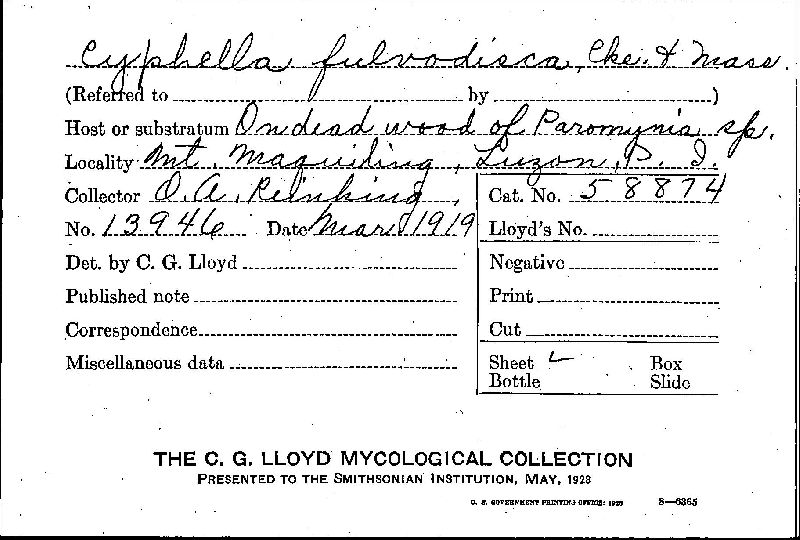 Cyphella fulvodisca, Cke. & Mass.
(Referred to by )
Host or substratum On dead wood of Paromynia sp.
Locality Mt. Maquiding, Luzon, P. I.
Collector O. A. Reinking, Cat. No. 58874
No. 13946 Date Mar. 1919 Lloyd's No.
Det. by C. G. Lloyd Negative
Published note Print
Correspondence Cut
Miscellaneous data Sheet Box
Bottle Slide
THE C. G. LLOYD MYCOLOGICAL COLLECTION
PRESENTED TO THE SMITHSONIAN INSTITUTION, MAY, 1928
U. S. GOVERNMENT PRINTING OFFICE: 1927 8—6365